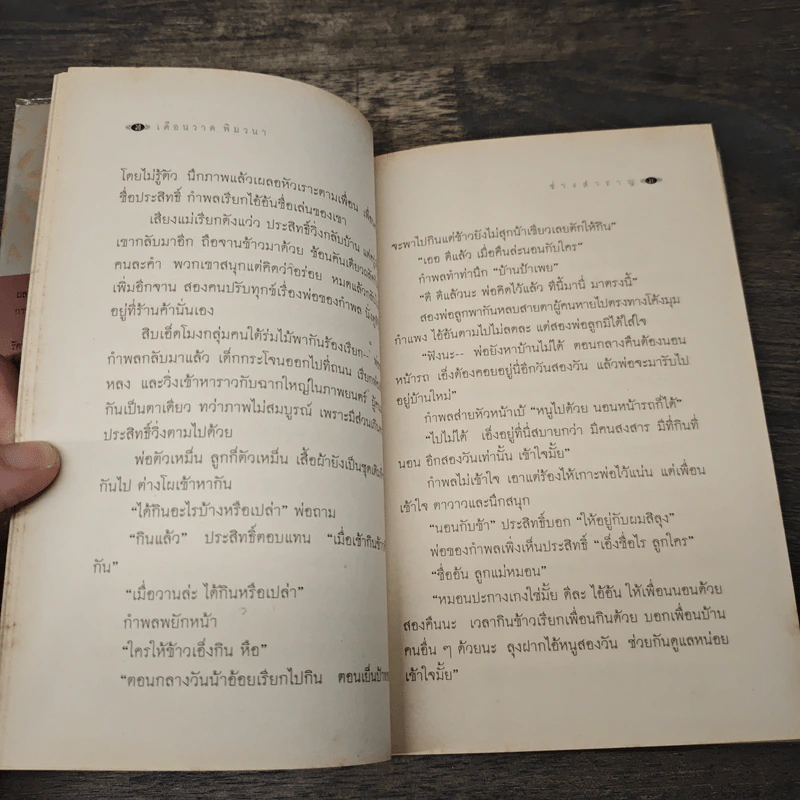 20 เดือนวาด พิมวนา
โดยไม่รู้ตัว นึกภาพแล้วเผลอหัวเราะตามเพื่อน
ชื่อประสิทธิ์ กำพลเรียกไอ้อันชื่อเล่นของเขา
เสียงแม่เรียกดังแว่ว ประสิทธิ์วิ่งกลับบ้าน
เขากลับมาอีก ถือจานข้าวมาด้วย ช้อนคันเดียว
คนละคำ พวกเขาสนุกแต่คิดว่าอร่อย หมดแล้ว
เพิ่มอีกจาน สองคนปรับทุกข์เรื่องพ่อของกำพล
อยู่ที่ร้านค้านั่นเอง
สิบเอ็ดโมงกลุ่มคนใต้ร่มไม้พากันร้องเรียก--
กำพลกลับมาแล้ว เด็กกระโจนออกไปที่ถนน
หลง และวิ่งเข้าหาราวกับฉากใหญ่ในภาพยนตร์
กันเป็นตาเดียว ทว่าภาพไม่สมบูรณ์ เพราะมีส่วนเกิน
ประสิทธิ์วิ่งตามไปด้วย
พ่อตัวเหม็น ลูกก็ตัวเหม็น เสื้อผ้ายังเป็นชุดเดิม
กันไป ต่างโผเข้าหากัน
“ได้กินอะไรบ้างหรือเปล่า” พ่อถาม
“กินแล้ว” ประสิทธิ์ตอบแทน “เมื่อเช้ากินข้าว
กัน”
“เมื่อวานล่ะ ได้กินหรือเปล่า”
กำพลพยักหน้า
“ใครให้ข้าวเอ็งกิน หือ”
“ตอนกลางวันน้าอ้อยเรียกไปกิน ตอนเย็น
ช่างสำราญ 21
จะพาไปกินแต่ข้าวยังไม่สุกน้าเขียวเลยตักให้กิน”
“เออ ดีแล้ว เมื่อคืนล่ะนอนกับใคร”
กำพลทำท่านึก “บ้านป้าเพย”
“ดี ดีแล้วนะ พ่อคิดไว้แล้ว ที่นี้มานี่ มาตรงนี้”
สองพ่อลูกพากันหลบสายตาผู้คนหายไปตรงทางโค้งมุม
กำแพง ไอ้อันตามไปไม่ลดละ แต่สองพ่อลูกมิได้ใส่ใจ
“ฟังนะ-- พ่อยังหาบ้านไม่ได้ ตอนกลางคืนต้องนอน
หน้ารถ เอ็งต้องคอยอยู่นี่อีกวันสองวัน แล้วพ่อจะมารับไป
อยู่บ้านใหม่”
กำพลส่ายหัวหน้าเบ้ “หนูไปด้วย นอนหน้ารถก็ได้”
“ไปไม่ได้ เอ็งอยู่ที่นี่สบายกว่า มีคนสงสาร มีที่กินที่
นอน อีกสองวันเท่านั้น เข้าใจมั้ย”
กำพลไม่เข้าใจ เอาแต่ร้องไห้เกาะพ่อไว้แน่น แต่เพื่อน
เข้าใจ ตาวาวและนึกสนุก
“นอนกับข้า” ประสิทธิ์บอก “ให้อยู่กับผมสิลุง”
พ่อของกำพลเพิ่งเห็นประสิทธิ์ “เอ็งชื่อไร ลูกใคร”
“ชื่ออัน ลูกแม่หมอน”
“หมอนปะกางเกงใช่มั้ย ดีละ ไอ้อัน ให้เพื่อนนอนด้วย
สองคืนนะ เวลากินข้าวเรียกเพื่อนกินด้วย บอกเพื่อนบ้าน
คนอื่น ๆ ด้วยนะ ลุงฝากไอ้หนูสองวัน ช่วยกันดูแลหน่อย
เข้าใจมั้ย”